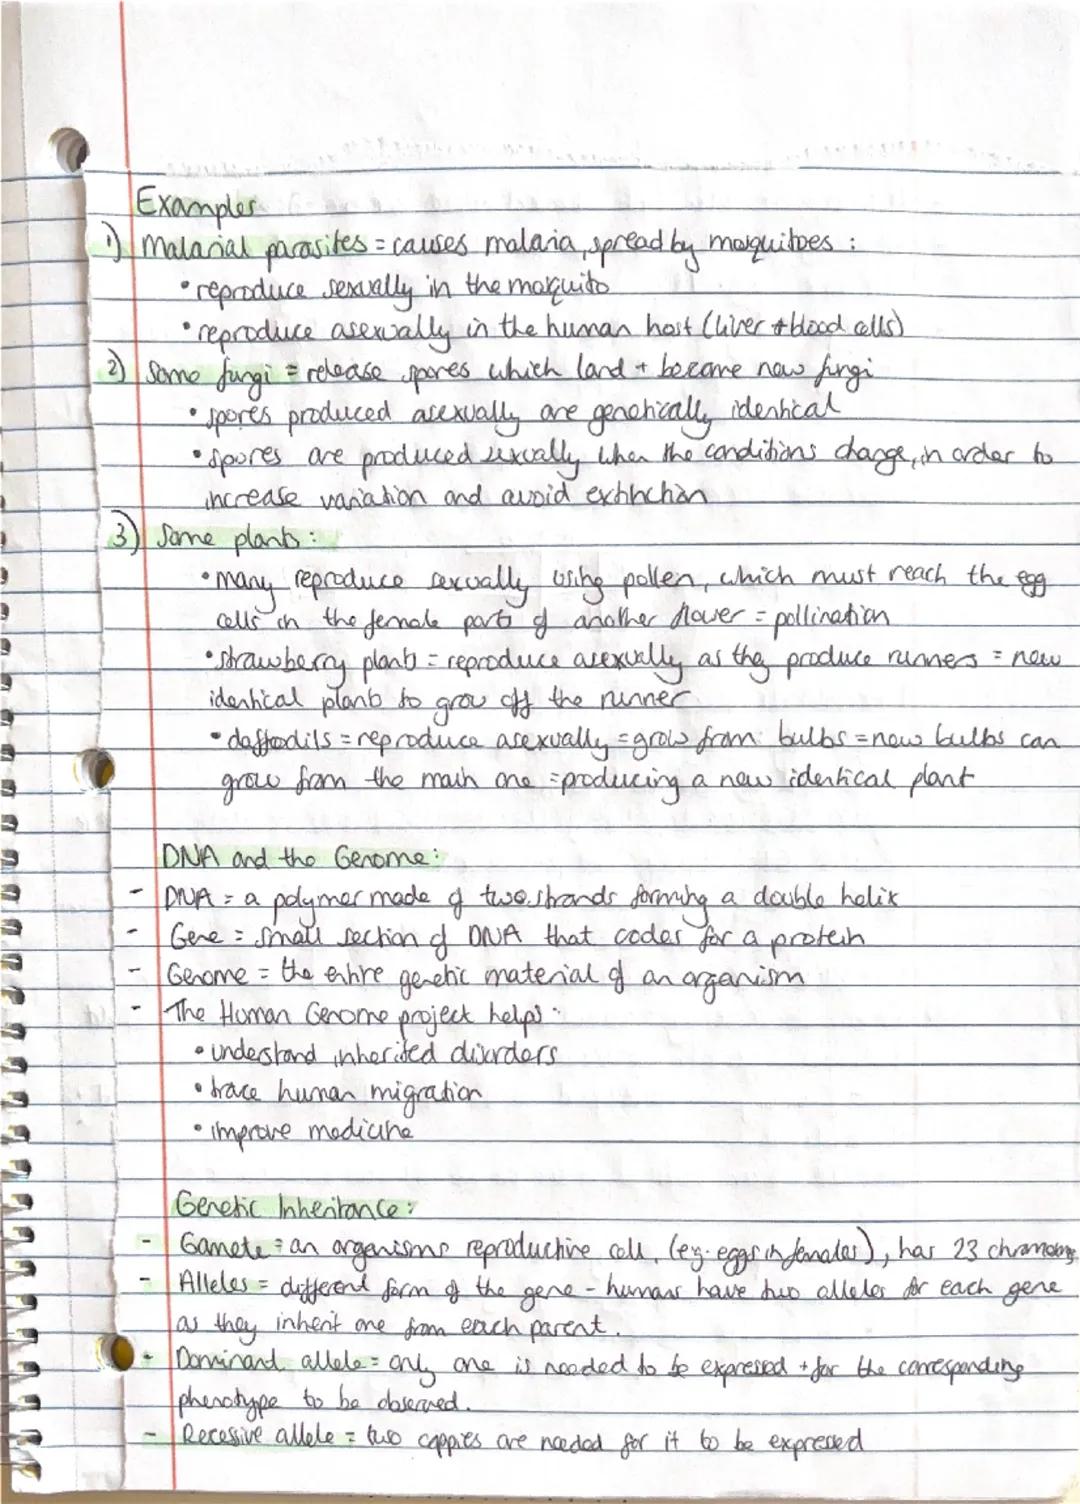 Examples
1) Malarial parasites = causes malaria, spread by mosquitoes :
• reproduce sexually in the mosquito
• reproduce asexually in the human host (liver + blood cells)
2) Some fungi = release spores which land + become new fungi
• spores produced asexually are genetically identical
• spores are produced sexually when the conditions change, in order to
increase variation and avoid extinction
3) Some plants :
• many reproduce sexually using pollen, which must reach the egg
cells in the female parts of another flower = pollination
• strawberry plants = reproduce asexually as they produce runners = new
identical plants to grow off the runner
• daffodils = reproduce asexually = grow from bulbs = new bulbs can
grow from the main one = producing a new identical plant
DNA and the Genome :
- DNA = a polymer made of two strands forming a double helix
- Gene = small section of DNA that codes for a protein
- Genome = the entire genetic material of an organism
- The Human Genome project helps :
• understand inherited disorders
• trace human migration
• improve medicine
Genetic Inheritance :
- Gamete = an organisms reproductive cell, (eg. eggs in females), has 23
- Alleles = different form of the gene - humans have two alleles for each gene
as they inherit one from each parent.
- Dominant allele = only one is needed to be expressed + for the corresponding
phenotype to be observed.
- Recessive allele = two coppies are needed for it to be expressed